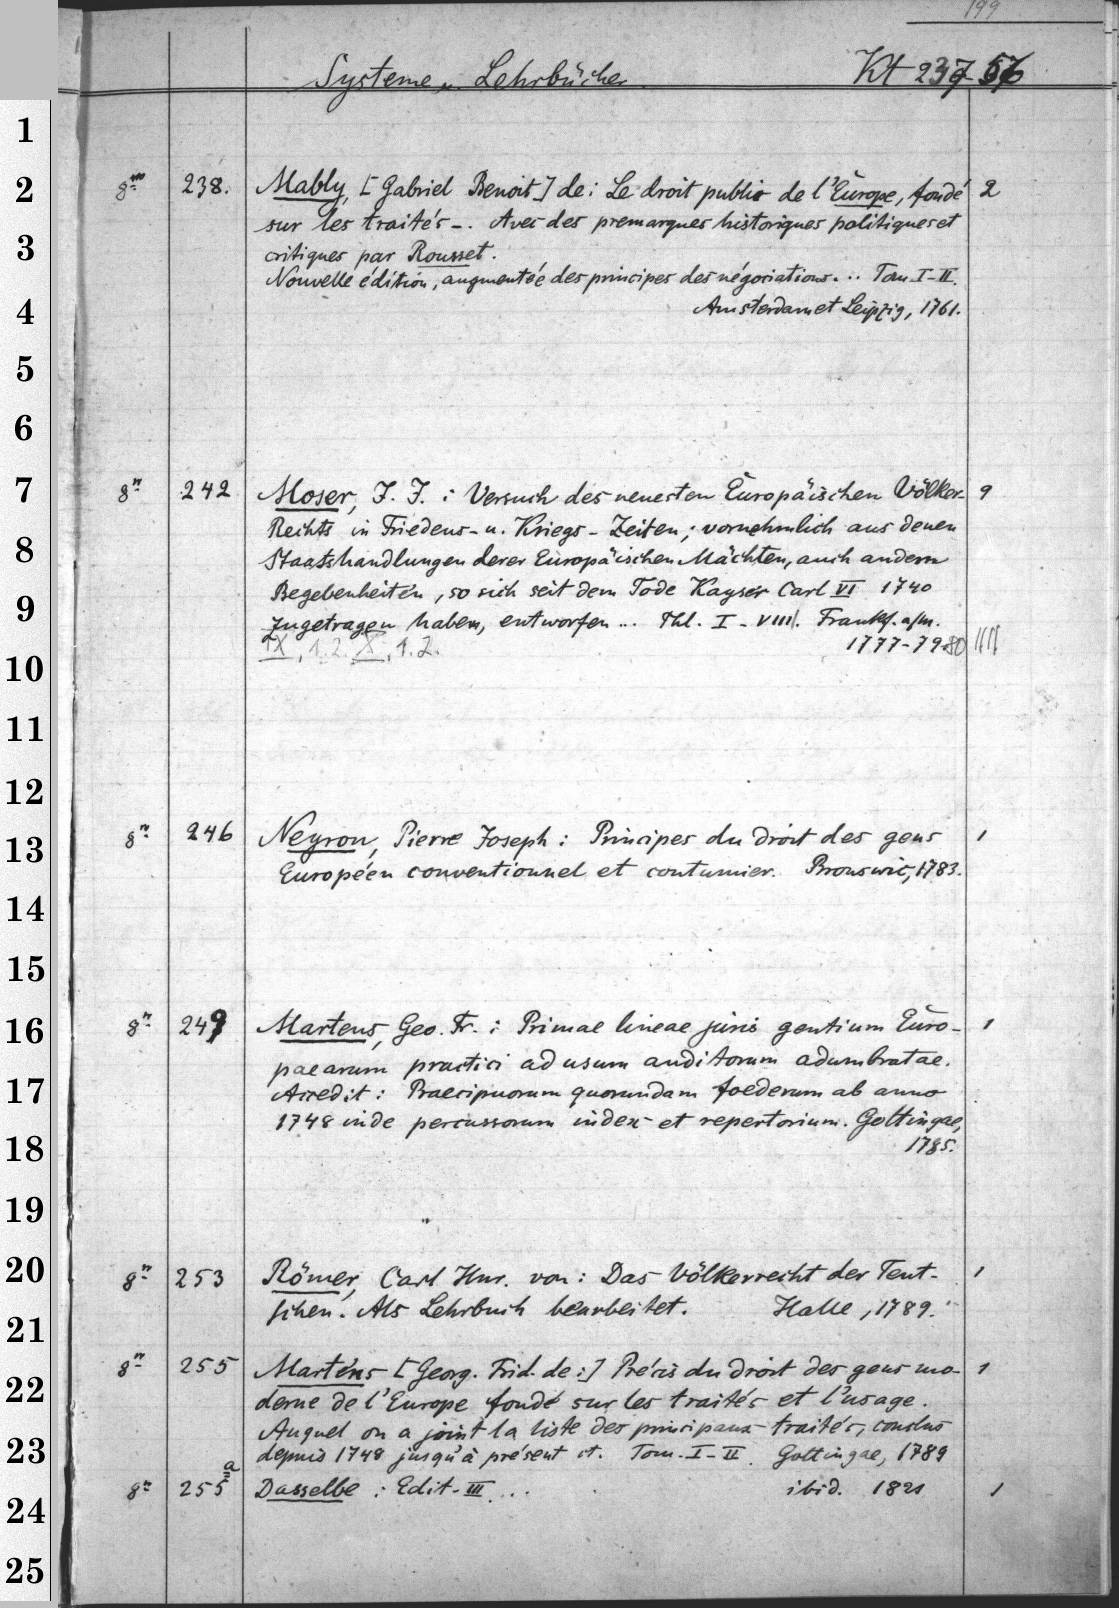 199
Systeme u. Lehrbücher. Kt 237 56
1
2 8º 238. Mably, [Gabriel Benoit] de: Le droit public de l'Europe, fondé 2
sur les traités -. Avec des premarques historiques politiques et
3 critiques par Rousset.
Nouvelle édition, augmenteé des principes des négociations... Tom I-II.
4 Amsterdam et Leipzig, 1761.
5
6
7 8º 242 Moser, J. J. : Versuch des neuesten Europäischen Völker- 9
Rechts in Friedens- u. Kriegs-Zeiten; vornehmlich aus denen
8 Staatshandlungen derer Europäischen Mächten, auch andern
Begebenheiten, so sich seit dem Tode Kayser Carl VI 1740
9 zugetragen haben, entworfen... Thl. I-VIII. Frankf. a/m.
IX, 1.2. X, 1.2. 1777-79-80
10
11
12
13 8º 246 Neyron, Pierre Joseph: Principes du droit des gens 1
Européen conventionnel et coutumier. Bronswic, 1783.
14
15
16 8º 249 Martens, Geo. Fr. : Primae lineae juris gentium Euro- 1
paearum practici ad usum auditorum adumbratae.
17 Accedit: Praecipuorum quorundam foederum ab anno
1748 inde percussorum index et repertorium. Gottingae,
18 1785.
19
20 8º 253 Römer, Carl Hnr. von: Das Völkerrecht der Teut- 1
schen. Als Lehrbuch bearbeitet. Halle, 1789.
21
8º 255 Martens [Georg. Frid. de:] Précis du droit des gens mo- 1
22 derne de l'Europe fondé sur les traités et l'usage.
Auquel on a joint la liste des principaux traités, conclus
23 depuis 1748 jusqu'à présent ct. Tom. I-II. Gottingae, 1789
8º 255a Dasselbe : Edit. III... ibid. 1821 1
24
25